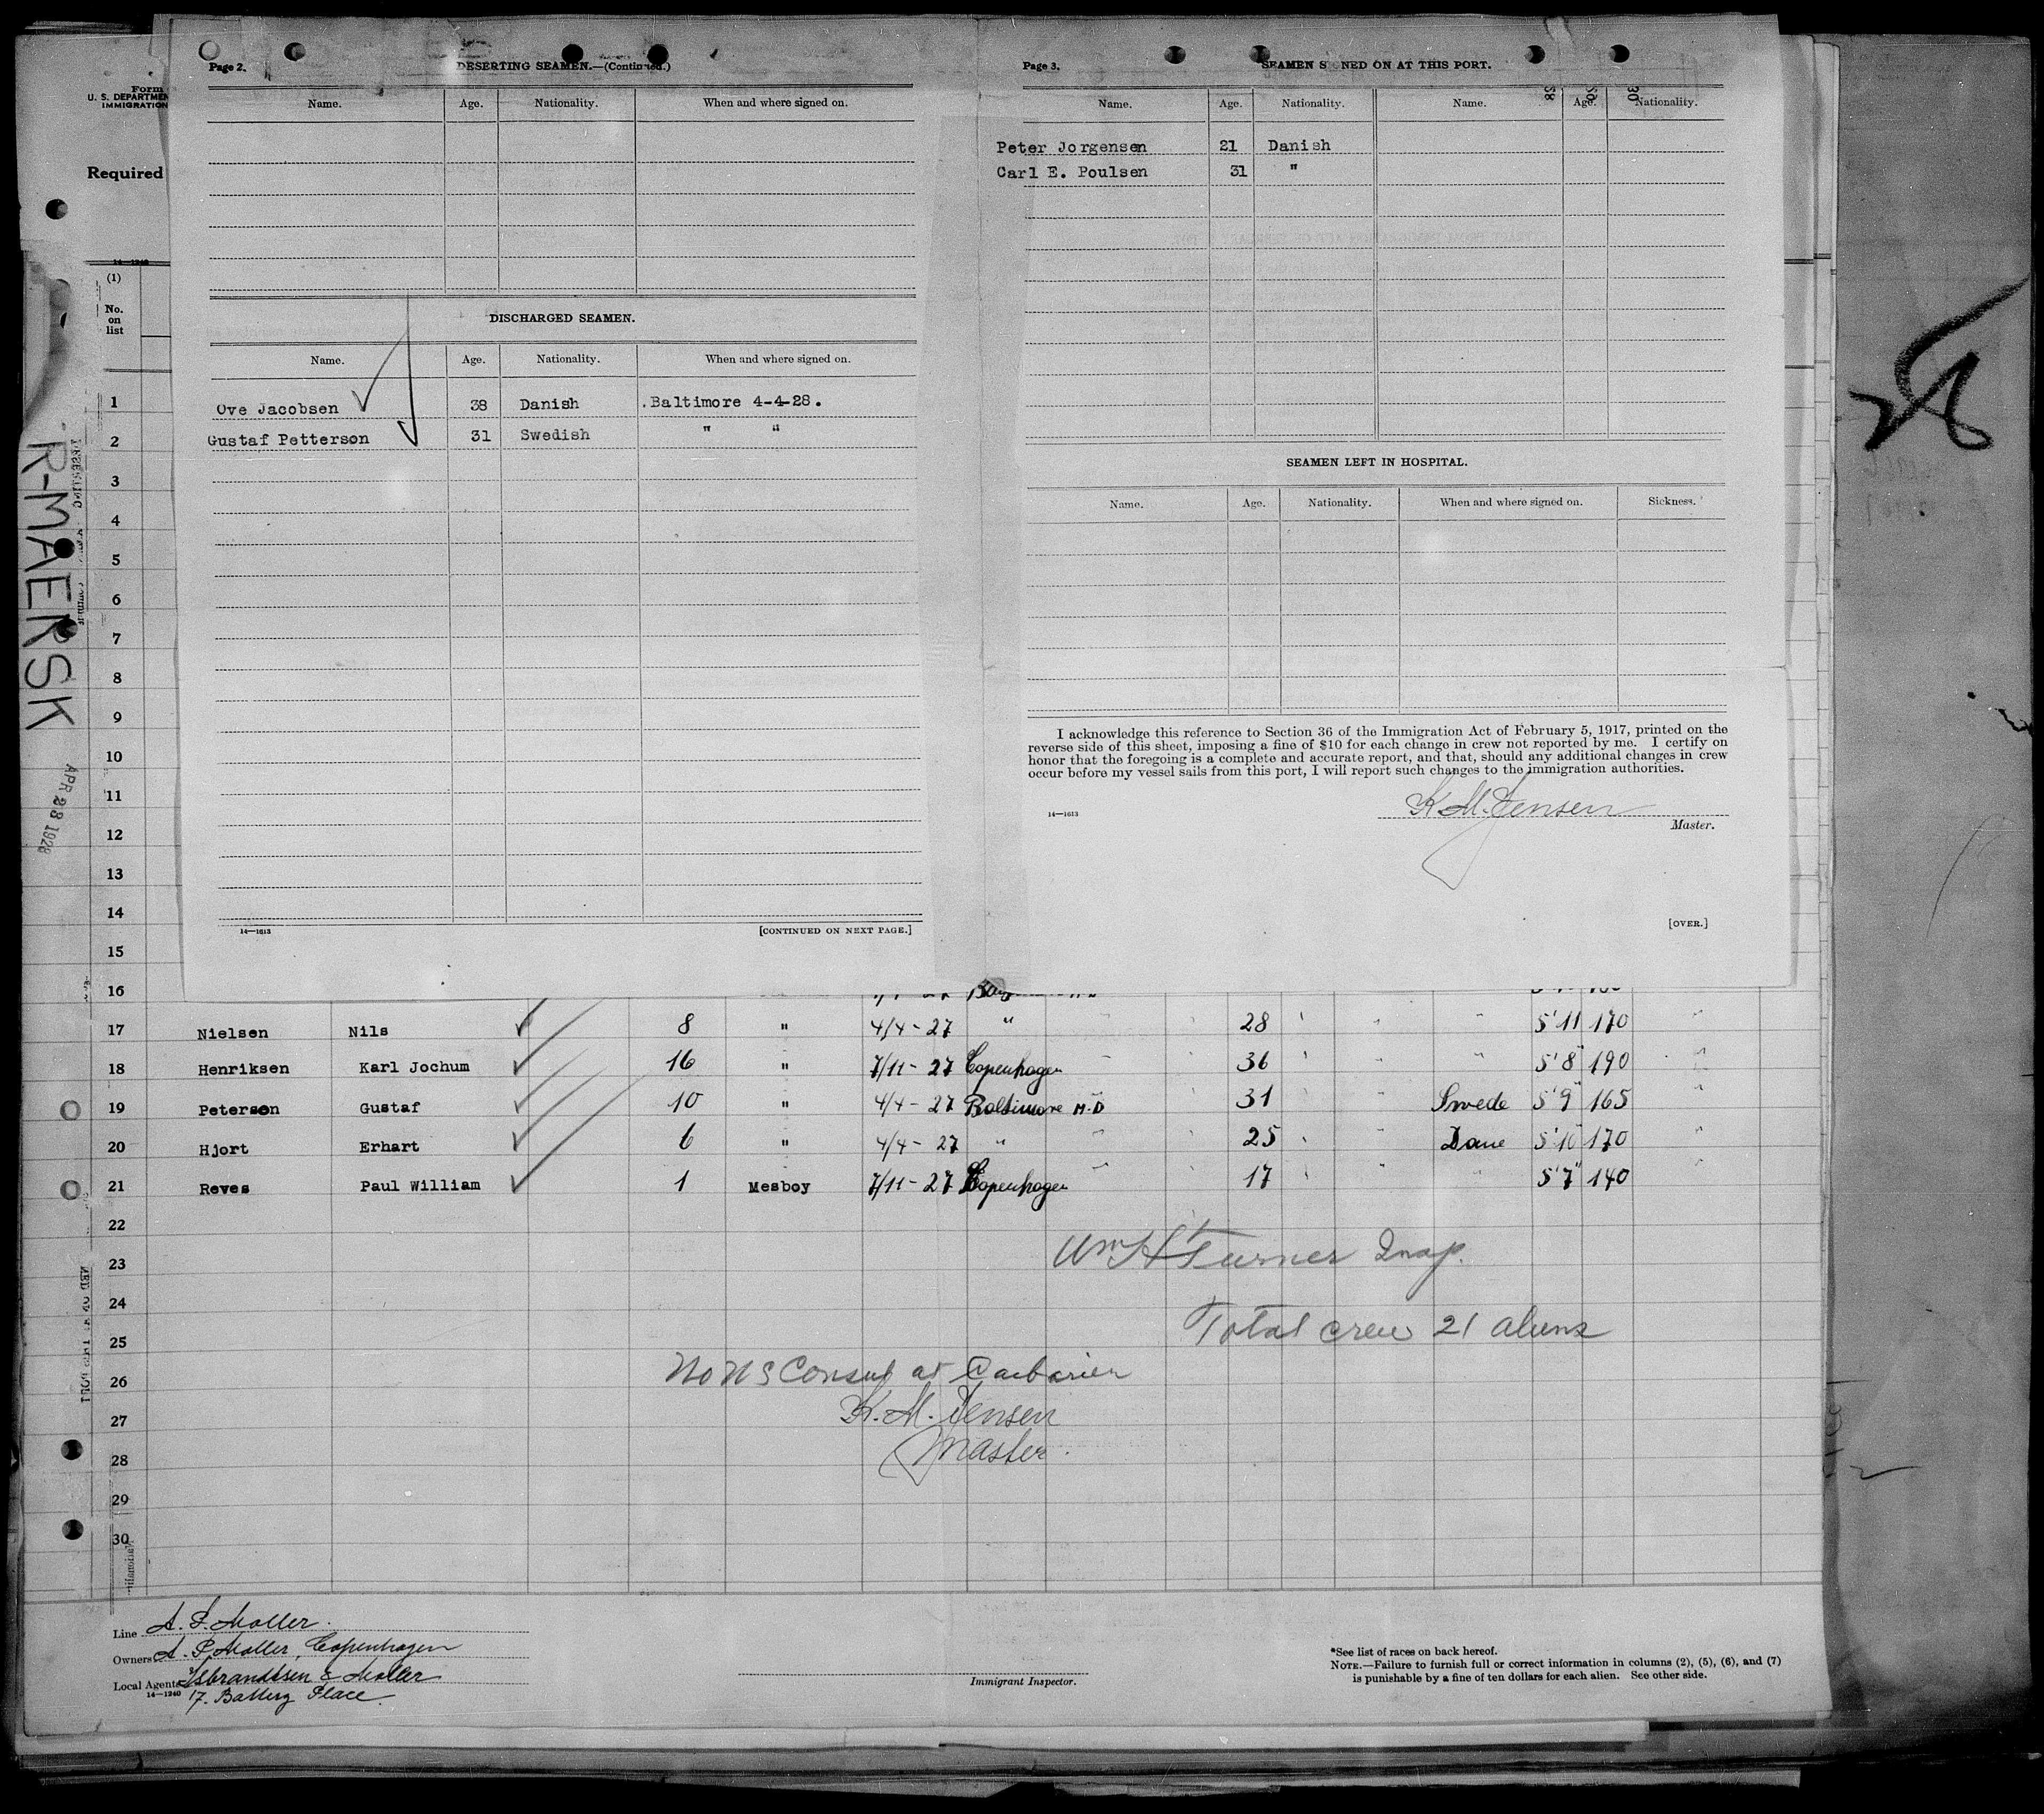 Page 2.
DESERTING SEAMEN.—(Continued.)
Name. Age. Nationality. When and where signed on.
DISCHARGED SEAMEN.
Name. Age. Nationality. When and where signed on.
Ove Jacobsen 38 Danish .Baltimore 4-4-28.
Gustaf Petterson 31 Swedish " "
14—1613
[CONTINUED ON NEXT PAGE.]
Page 3.
SEAMEN S NED ON AT THIS PORT.
Name. Age. Nationality. Name. Age. Nationality.
Peter Jorgensen 21 Danish
Carl E. Poulsen 31 "
SEAMEN LEFT IN HOSPITAL.
Name. Age. Nationality. When and where signed on. Sickness.
I acknowledge this reference to Section 36 of the Immigration Act of February 5, 1917, printed on the
reverse side of this sheet, imposing a fine of $10 for each change in crew not reported by me. I certify on
honor that the foregoing is a complete and accurate report, and that, should any additional changes in crew
occur before my vessel sails from this port, I will report such changes to the immigration authorities.
K. M. Jensen
14—1613
Master.
[OVER.]
Form
U. S. DEPARTMEN
IMMIGRATION
Required
14—1240
(1)
No.
on
list
R-MAERSK
APR 28 1928
1
2
3
4
5
6
7
8
9
10
11
12
13
14
15
16
17 Nielsen Nils 8 " 4/4-27 " 28 " " " 5'11 170 "
18 Henriksen Karl Jochum 16 " 7/11-27 Copenhagen " 36 " " " 5'8" 190 "
19 Peterson Gustaf 10 " 4/4-27 Baltimore M.D 31 Swede 5'9" 165 "
20 Hjort Erhart 6 " 4/4-27 " " 25 " " Dane 5'10" 170 "
21 Reves Paul William 1 Mesboy 7/11-27 Copenhagen " 17 " " " 5'7" 140
22
23
24
25
26
27
28
29
30
Wm H Turner Insp.
Total crew 21 aliens
No US Consul at Caibarien
K. M. Jensen
Master.
Line A. P. Moller.
Owners A. P. Moller, Copenhagen
Local Agents Isbrandtsen & Moller
14—1240
17. Battery Place.
Immigrant Inspector.
*See list of races on back hereof.
NOTE.—Failure to furnish full or correct information in columns (2), (5), (6), and (7)
is punishable by a fine of ten dollars for each alien. See other side.